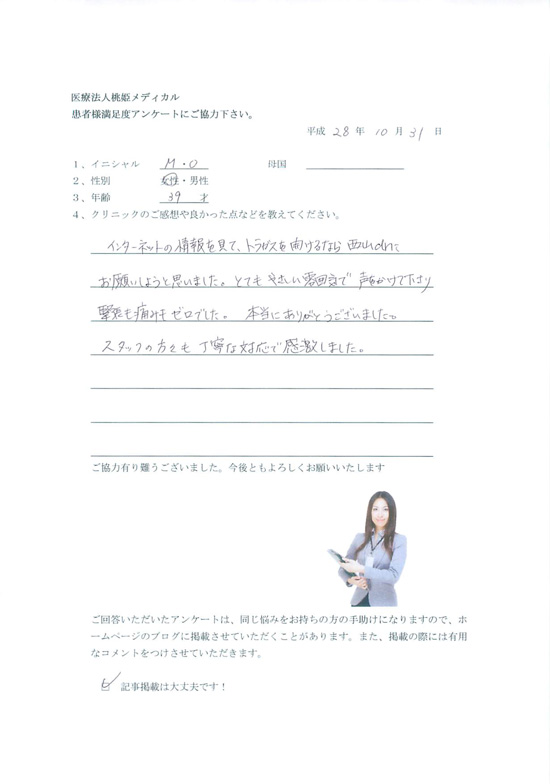 医療法人桃姫メディカル
患者様満足度アンケートにご協力下さい。
平成 28 年 10 月 31 日
1、イニシャル M・O 母国
2、性別 女性・男性
3、年齢 39 才
4、クリニックのご感想や良かった点などを教えてください。
インターネットの情報を見て、トラガスを開けるなら西山drに
お願いしようと思いました。とてもやさしい雰囲気で声をかけて下さり
緊張も痛みもゼロでした。 本当にありがとうございました。
スタッフの方々も丁寧な対応で感激しました。
ご協力有り難うございました。今後ともよろしくお願いいたします
ご回答いただいたアンケートは、同じ悩みをお持ちの方の手助けになりますので、ホ
ームページのブログに掲載させていただくことがあります。また、掲載の際には有用
なコメントをつけさせていただきます。
記事掲載は大丈夫です！